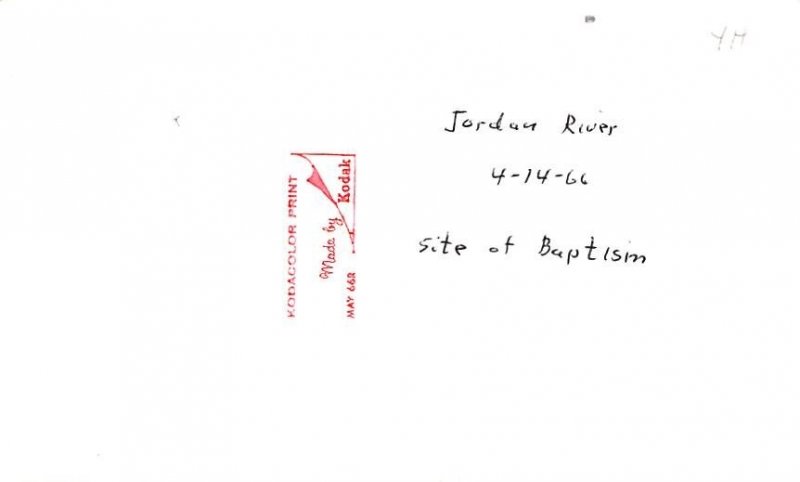 YM
Jordan River
4-14-66
Site of Baptism
KODACOLOR PRINT
Made by
Kodak
MAY 66R